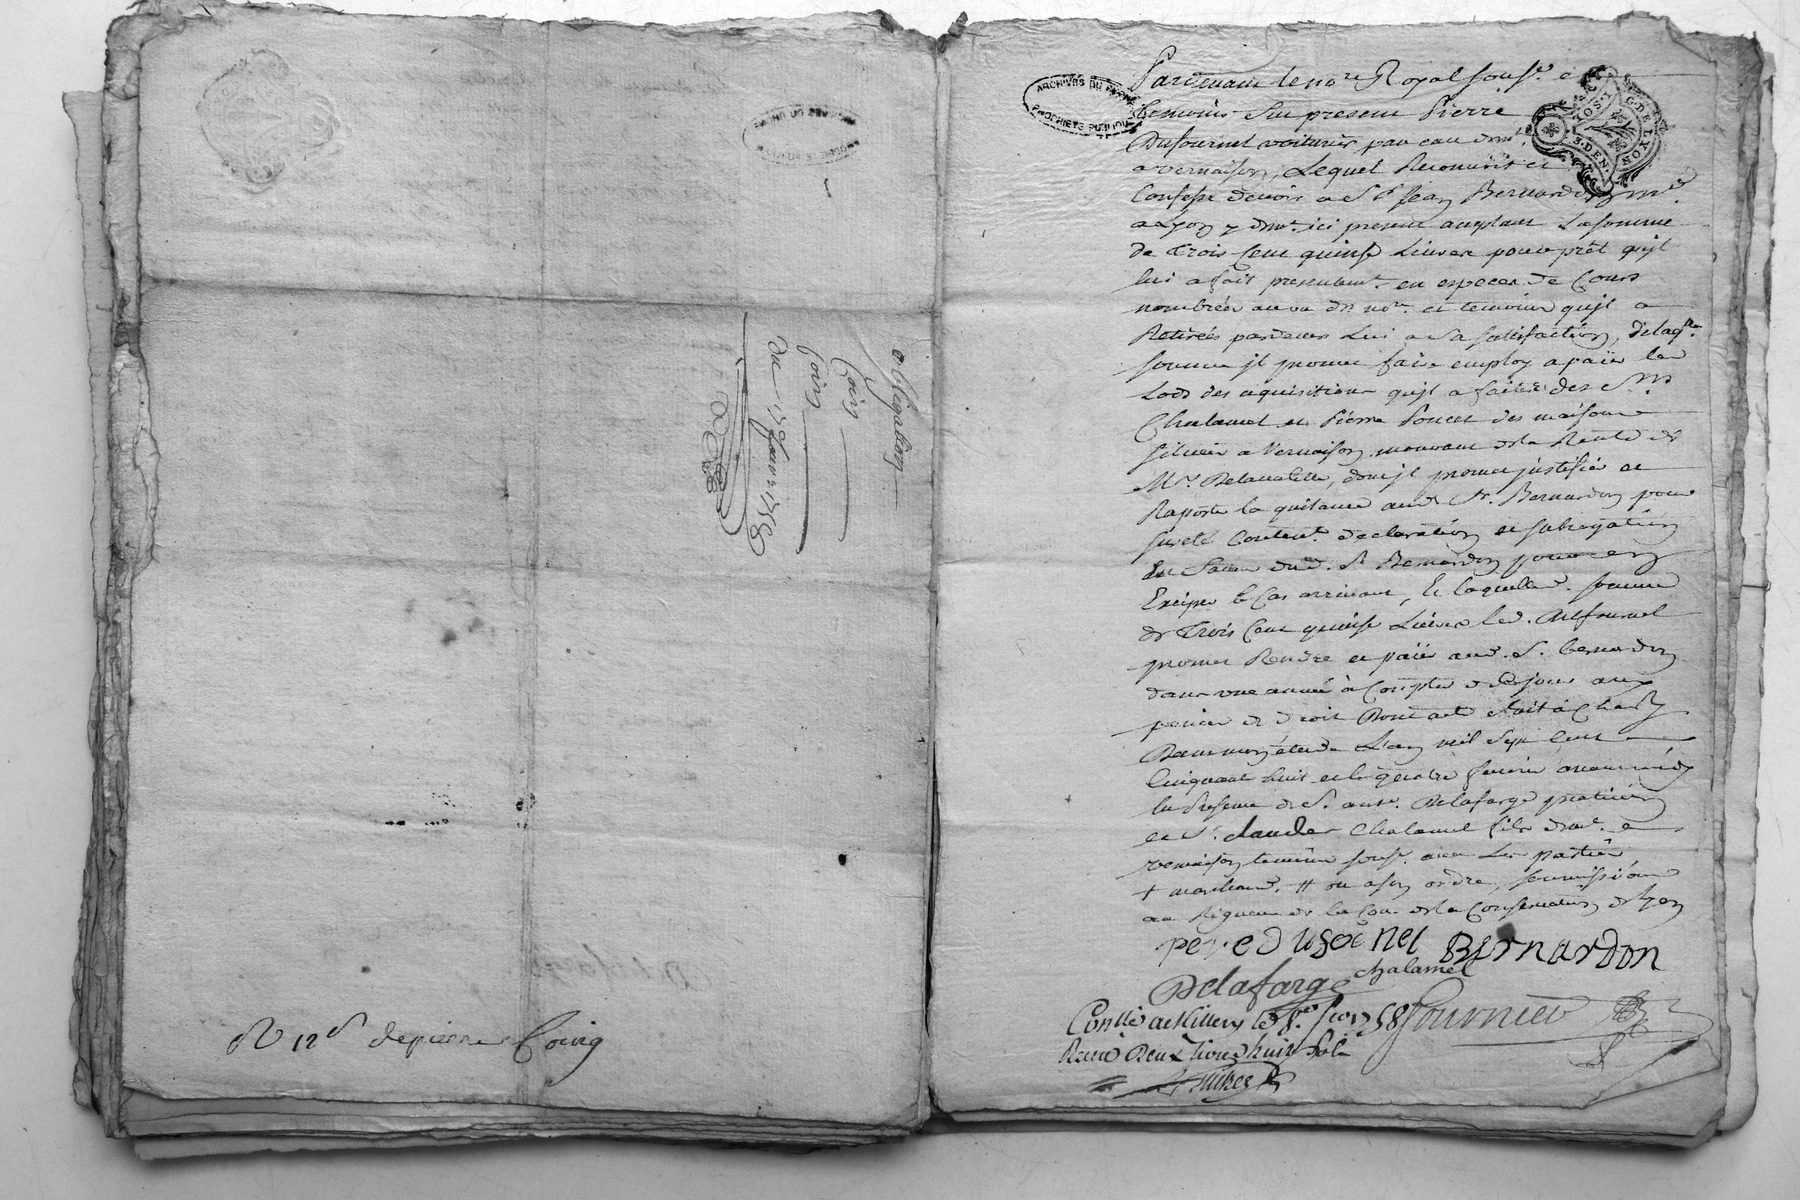 obligation
Coin
Coin
Du 19e janvr 1758
R 12 s depierre Coing
ARCHIVES DU RHÔNE
PROPRIÉTÉ PUBLIQUE
G. DE LYON
1. SOL
3. DEN.
Pardevant le nore Royal sousé. e
temoins Fut present Pierre
Dufournel voiturier par eau demt.
a vernaison, Lequel Reconnoit et
Confesse devoir a Sr Jean Bernardon mre
a Lyon y demt. ici present acceptant La somme
de Trois Cent quinse Livres pour prêt qu'il
lui a fait presentemt. en especes de Cours
nombrées au vu du nore et temoins qu'il a
Retirés pardevers Lui a Sa satisfaction, de laqlle
somme il promet faire employ a païer les
Lods des aquisitions qu'il a faites des Srs
Chalamel et Pierre Poncet des maisons
situées a Vernaison mouvant de la Rente de
Mr. Delavalette, dont il promet justifier et
Raporter la quitance aud. Sr. Bernardon pour
sureté Content. declaration et subrogation
En faveur dud. Sr Bernardon pour en
Exciper le Cas arrivant, Et laquelle d. somme
de Trois Cent quinse Livres led. Dufournel
promet Rendre et païer aud. Sr. bernardon
dans une année à Compter de ce jour aux
peines de droit Dont acte fait à Charly
L'an mil Sept Cent
Cinquante huit et le quatre fevrier avant midy
En Presence de Sr. ant. Delafarge praticien
et Sr. claude Chalamel fils demt. a
vernaison temoins sousé. avec Les parties
+ marchand. # ou a son ordre, soumissions
au Rigueurs de la Cour de la Conservation de Lyon
pere dufornel Bernardon
Delafarge chalamel
Contllé a Millery le 8e fevr 1758 Fournier
Reçu Deux livres huit sols